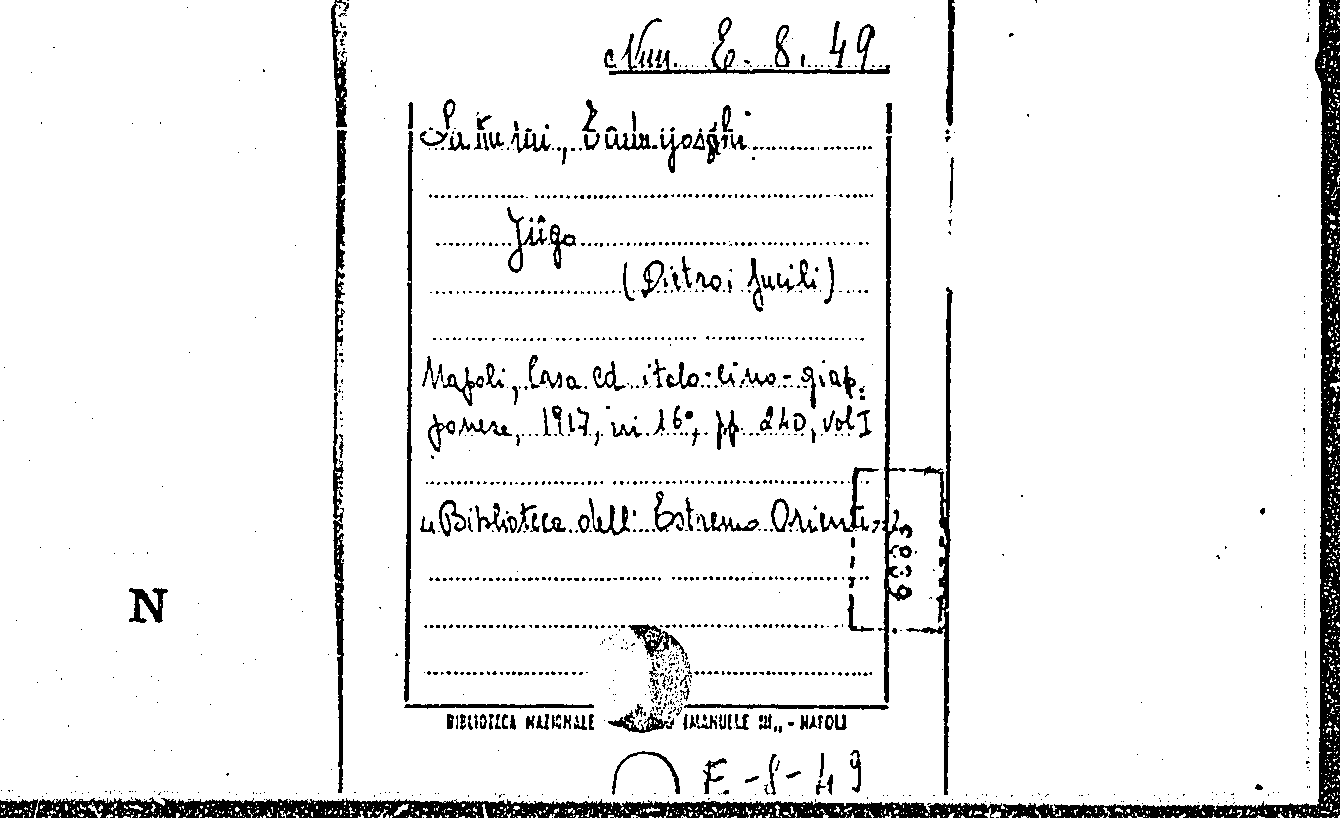 Num. E. 8. 49
Jûgo
(Dietro i fucili)
Napoli, Casa ed italo-cino-giap=
ponese, 1917, in 16°, pp 240, vol I
"Biblioteca dell' Estremo Oriente"
N
BIBLIOTECA NAZIONALE EMANUELE III„ - NAPOLI
E-8-49